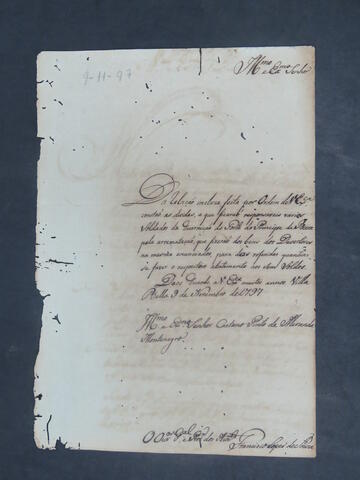 9-11-97
Illmo e Exmo Senhor
Da Relação incluza feita por Ordem de V. Exa
consta as dividas, a que ficarão responsaveis varios
Soldados da Guarnição do Forte do Principe da Beira
pela arrematação, que fizerão dos bens dos Dezertores
na mesma enunciados, para das referidas quantias
se fazer o respectivo abatimento nos seus Soldos.
Deos Guarde a V. Exa muitos annos Villa
Bella 9 de Novembro de 1797.
Illmo e Exmo Senhor Caetano Pinto de Miranda
Montenegro.
Francisco Lopes de